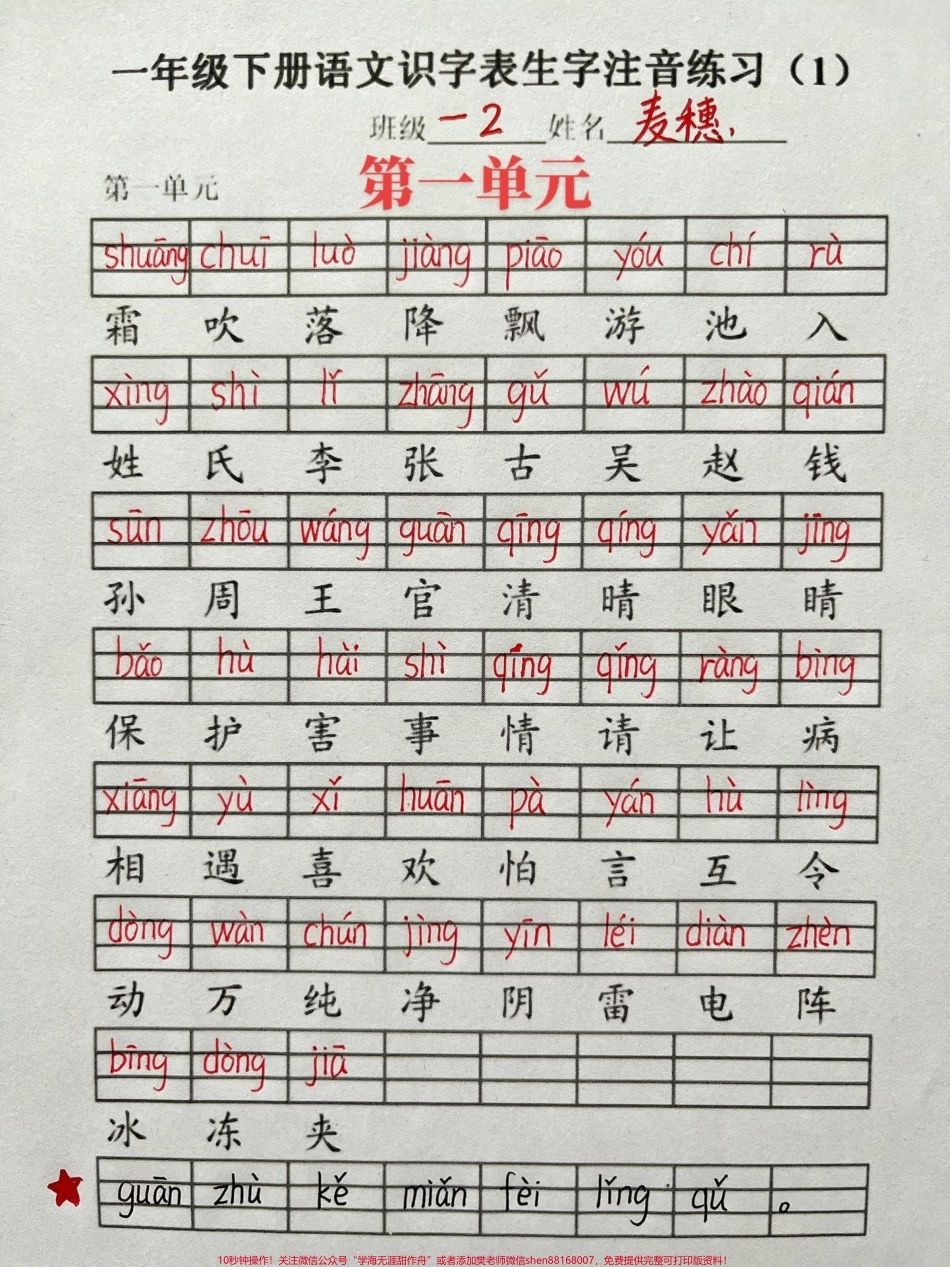 一年级下册语文识字表生字注音练习（1）
班级 一2 姓名 麦穗.
第一单元 第一单元
shuāng chuī luò jiàng piāo yóu chí rù
霜 吹 落 降 飘 游 池 入
xìng shì lǐ zhāng gǔ wú zhào qián
姓 氏 李 张 古 吴 赵 钱
sūn zhōu wáng guān qīng qíng yǎn jīng
孙 周 王 官 清 晴 眼 睛
bǎo hù hài shì qíng qǐng ràng bìng
保 护 害 事 情 请 让 病
xiāng yù xǐ huān pà yán hù lìng
相 遇 喜 欢 怕 言 互 令
dòng wàn chún jìng yīn léi diàn zhèn
动 万 纯 净 阴 雷 电 阵
bīng dòng jiā
冰 冻 夹
guān zhù kě miǎn fèi lǐng qǔ 。
10秒钟操作！关注微信公众号“学海无涯甜作舟”或者添加樊老师微信shen88168007，免费提供完整可打印版资料！